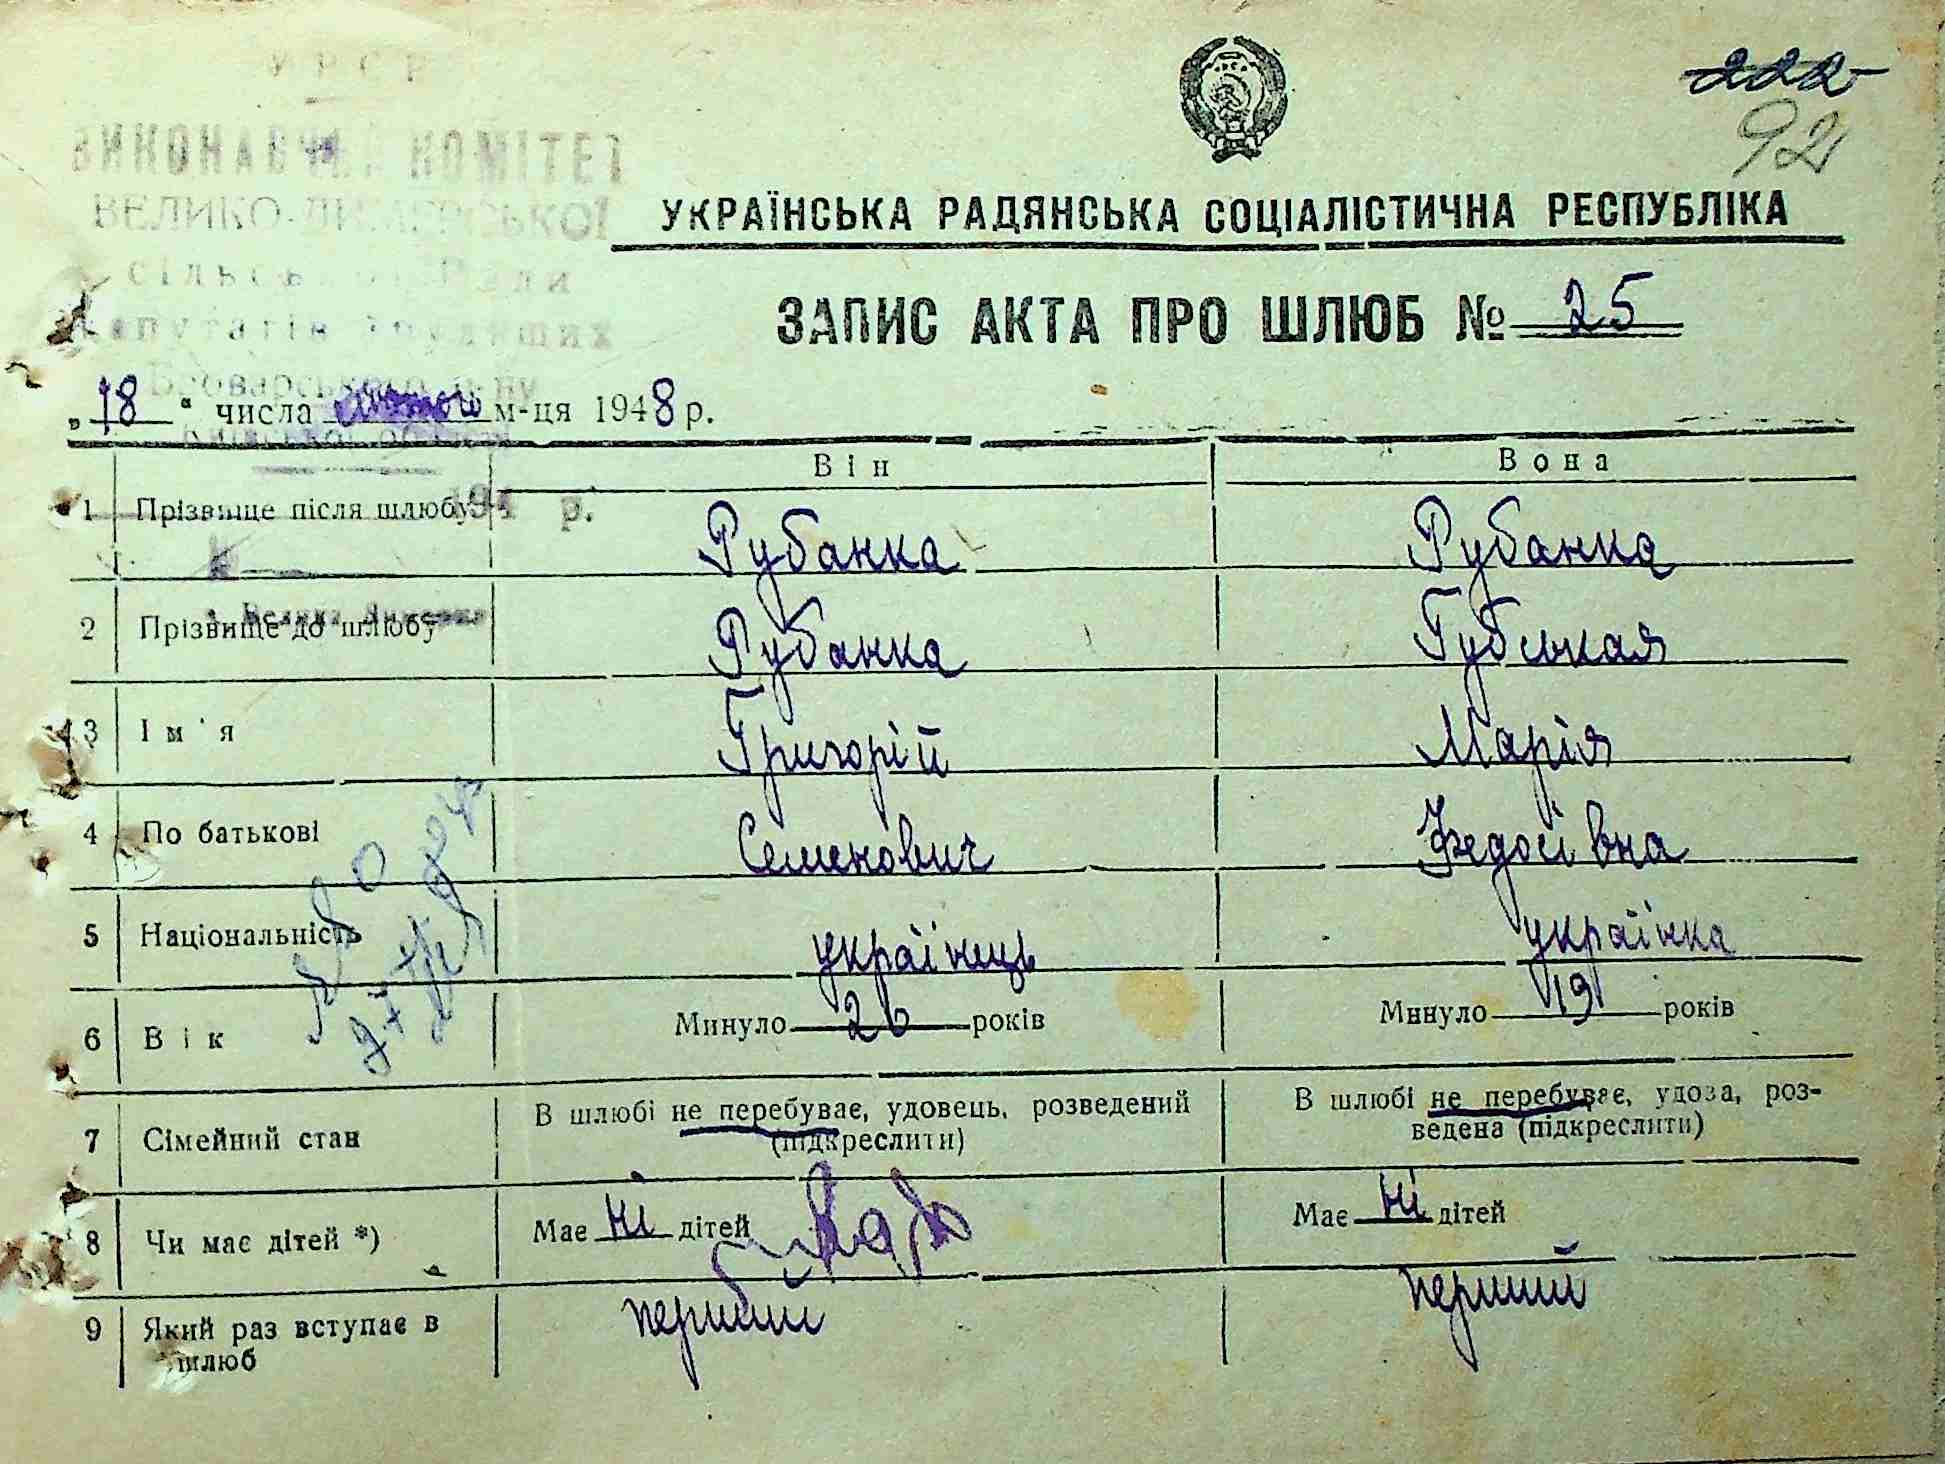 УРСР
222
92
ВИКОНАВЧИЙ КОМІТЕТ
ВЕЛИКО-ДИМЕРСЬКОЇ
сільської Ради
депутатів трудящих
Броварського р-ну
Київської області
УКРАЇНСЬКА РАДЯНСЬКА СОЦІАЛІСТИЧНА РЕСПУБЛІКА
ЗАПИС АКТА ПРО ШЛЮБ № 25
„18“ числа лютого м-ця 1948 р.
Він Вона
194 р.
1 Прізвище після шлюбу Рубанка Рубанка
с. Велика Димерка
2 Прізвище до шлюбу Рубанка Губська­я
3 Ім'я Григорій Марія
4 По батькові Семенович Федосівна
5 Національність українець українка
6 Вік Минуло 26 років Минуло 19 років
7 Сімейний стан В шлюбі не перебуває, удовець, розведений (підкреслити) В шлюбі не перебуває, удова, роз-
ведена (підкреслити)
8 Чи має дітей *) Має ні дітей Має ні дітей
9 Який раз вступає в шлюб первий перший